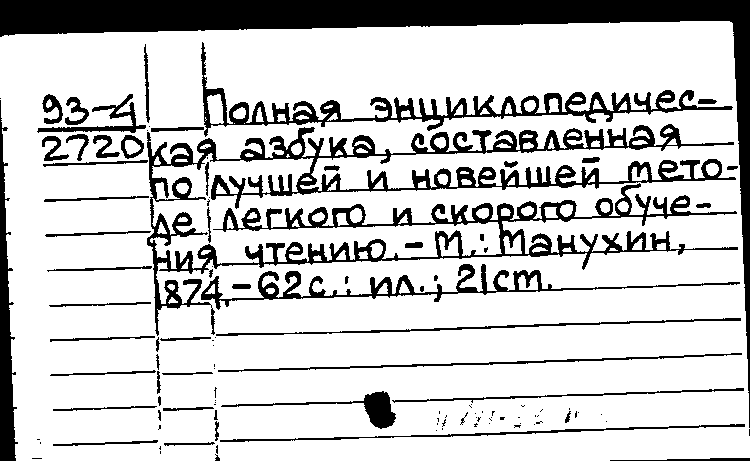 93-4 Полная энциклопедичес-
2720 кая азбука, составленная
по лучшей и новейшей мето-
де легкого и скорого обуче-
ния чтению. - М.: Манухин,
1874. - 62 с.: ил.; 21 cm.